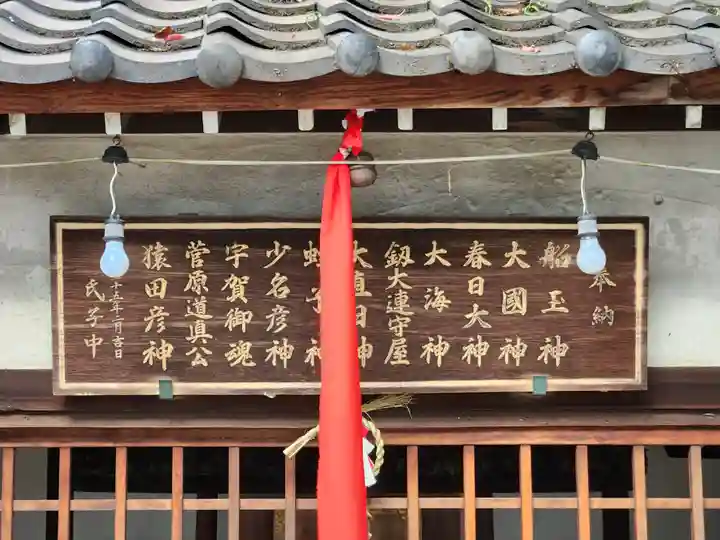 奉納
船玉神
大國神
春日大神
大海神
釼大連守屋
大直日神
蛭子神
少名彦神
宇賀御魂
菅原道真公
猿田彦神
十五年二月吉日
氏子中